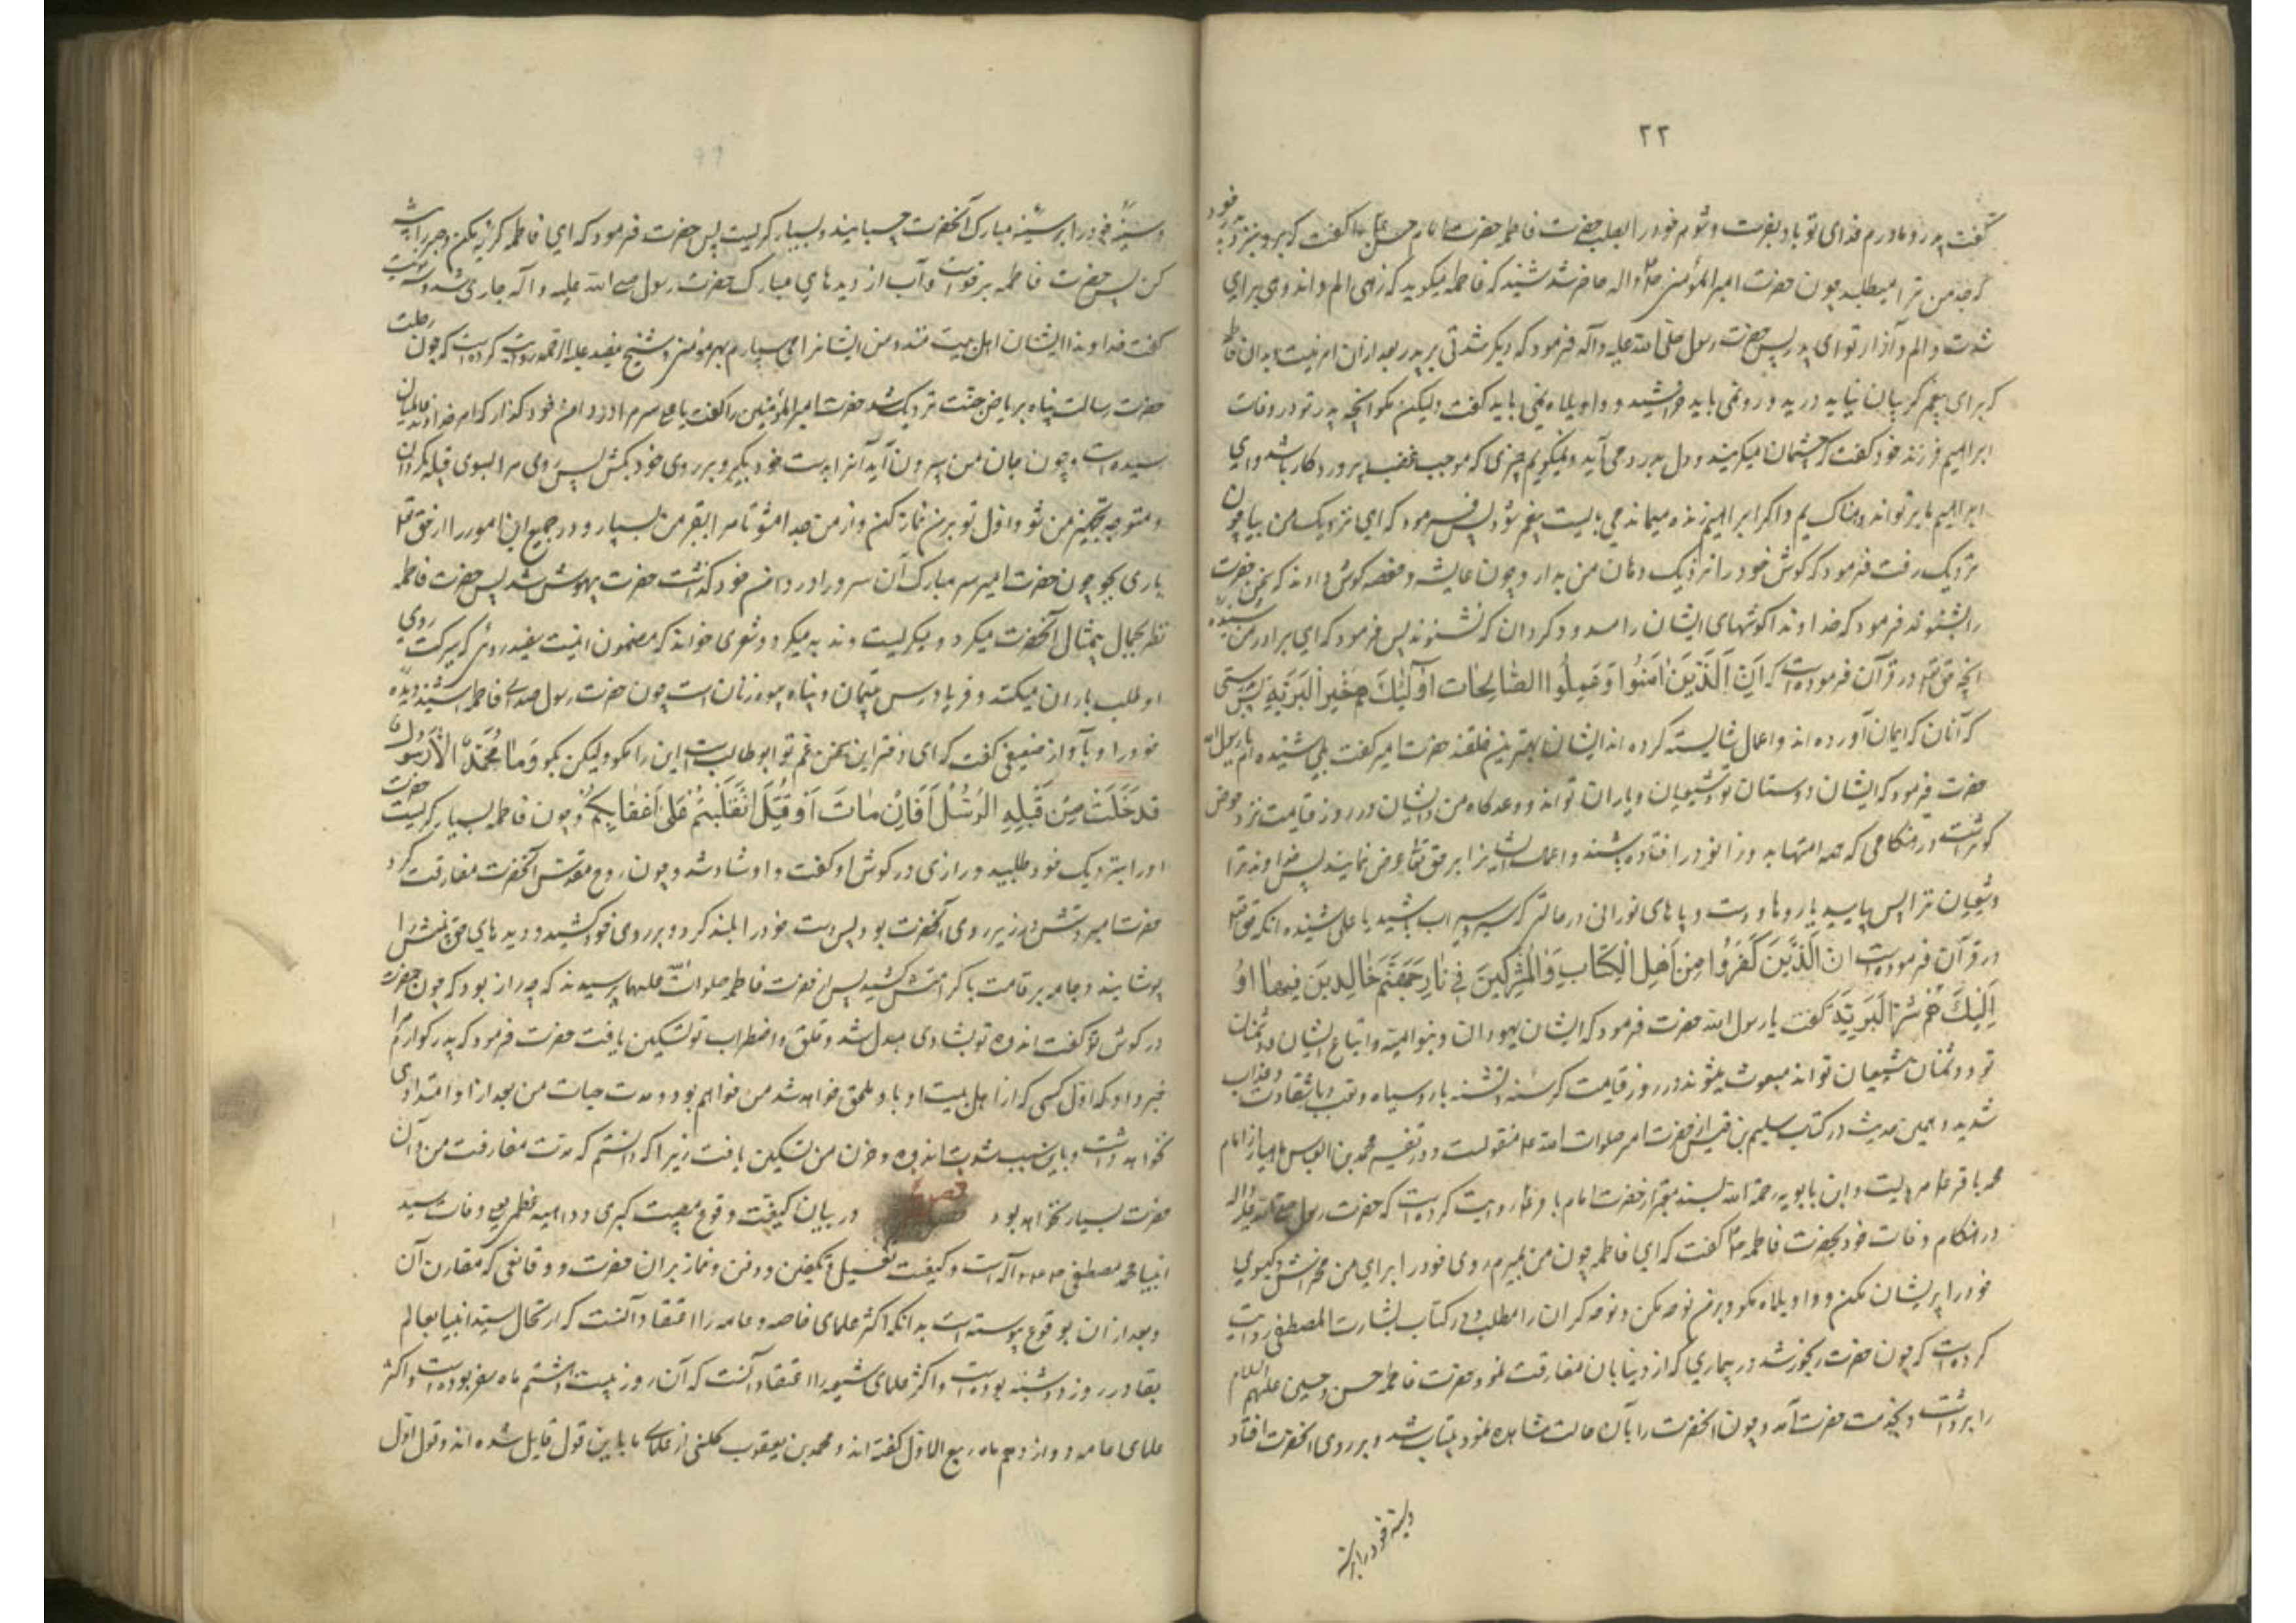 ۲۲
گفت پدر و مادرم فدای تو باد یا حضرت و شوم خود را بطلب حضرت فاطمه حضرت امام حسن را گفت که برو بنزد پدر خود
که جد من ترا میطلبد چون حضرت امیر المؤمنین حاضر شد شنید که فاطمه میگوید که زهی الم و اندوه برای
شدت و الم و آزار تو ای پدر پس حضرت رسول صلی الله علیه و آله فرمود که دیگر شدتی بر پدر تو بعد از این امر نیست بدان ای فاطمه
که برای پیغمبر گریبان نباید درید و رو نمی باید خراشید و واویلاه نمی باید گفت ولیکن بگو آنچه پدر تو در وفات
ابراهیم فرزند خود گفت که چشمان میگریند و دل بدرد می آید و نمیگویم چیزی که موجب غضب پروردگار باشد و ای
ابراهیم ما بر تو اندوهناکیم و اگر ابراهیم زنده میماند می بایست پیغمبر شود پس فرمود که ای نزدیک من بیا چون
نزدیک رفت فرمود که گوش خود را نزدیک دهان من بدار و چون عایشه و حفصه گوش دادند که سخن حضرت
را بشنوند فرمود که خداوندا گوشهای ایشان را مسدود گردان که نشنوند پس فرمود که ای برادر من شنیدهٔ
آنچه حق تعالی در قرآن فرموده است که اِنَّ الَّذِینَ اٰمَنُوا وَعَمِلُوا الصّٰالِحٰاتِ اُولٰئِکَ هُمْ خَیْرُ الْبَرِیَّةِ بدرستی
که آنان که ایمان آورده اند و اعمال شایسته کرده اند ایشان بهترین خلقند حضرت امیر گفت بلی شنیده ام یا رسول الله
حضرت فرمود که ایشان دوستان تو و شیعیان و یاران تواند و وعده گاه من و ایشان در روز قیامت نزد حوض
کوثر است در هنگامی که همه امتها بدو زانو در افتاده باشند و اعمال ایشان را بر حق تعالی عرض نمایند پس خداوند ترا
و شیعیان ترا پس بیایید با روها و دست و پاهای نورانی در حالتی که سیر و سیراب باشید یا علی شنیده آنکه حق تعالی
در قرآن فرموده است اِنَّ الَّذِینَ کَفَرُوا مِنْ اَهْلِ الْکِتٰابِ وَالْمُشْرِکِینَ فِی نٰارِ جَهَنَّمَ خٰالِدِینَ فِیهٰا اُو
لٰئِکَ هُمْ شَرُّ الْبَرِیَّةِ گفت یا رسول الله حضرت فرمود که ایشان یهودان و بنو امیه و اتباع ایشان و دشمنان
تو و دشمنان شیعیان تواند مبعوث میشوند در روز قیامت گرسنه و تشنه با رو سیاه و تعب با شقاوت و عذاب
شدید و همین حدیث در کتاب سلیم بن قیس از حضرت امیر صلوات الله علیه منقولست و در تفسیر محمد بن العباس از امام
محمد باقر مرویست و ابن بابویه رحمة الله بسند معتبر از حضرت امام باقر روایت کرده است که حضرت رسول صلی الله علیه و آله
در هنگام وفات خود بحضرت فاطمه گفت که ای فاطمه چون من بمیرم روی خود را برای من مخراش و گیسوی
خود را پریشان مکن و واویلاه مگو و بر من نوحه مکن و نوحه گران را مطلب و در کتاب بشارت المصطفی روایت
کرده است که چون حضرت رنجور شد در بیماری که از دنیا بان مفارقت نمود حضرت فاطمه حسن و حسین علیهم السلام
را برداشت و بخدمت حضرت آمد و چون آنحضرت را بآن حالت مشاهده نمود بیتاب شد و بر روی آنحضرت افتاد
و سینه خود را بر
و سینهٔ خود را بر سینهٔ مبارک آنحضرت چسبانید و بسیار گریست پس حضرت فرمود که ای فاطمه گریه مکن و صبر را پیشه
کن پس حضرت فاطمه برخواست و آب از دیدهای مبارک حضرت رسول صلی الله علیه و آله جاری شد و سه نوبت
گفت خداوندا ایشان اهل بیت منند و من ایشانرا می سپارم بهر مؤمنی و شیخ مفید علیه الرحمه روایت کرده است که چون رحلت
حضرت رسالت پناه بریاض جنت نزدیک شد حضرت امیرالمؤمنین را گفت یا علی سر مرا در دامن خود گذار که امر خداوند عالمیان
رسیده است و چون جان من بیرون آید آنرا بدست خود بگیر و بر روی خود بکش پس روی مرا بسوی قبله گردان
و متوجه تجهیز من شو و اول تو بر من نماز کن و از من جدا مشو تا مرا بقبر من بسپاری و در جمیع این امور از حق تعالی
یاری بجو چون حضرت امیر سر مبارک آن سرور را در دامن خود گذاشت حضرت بیهوش شد پس حضرت فاطمه
نظر بجمال بیمثال آنحضرت میکرد و میگریست و ندبه میکرد و شعری خواند که مضمون اینست سفید روئی که ببرکت روی
او طلب باران میکنند و فریادرس یتیمان و پناه بیوه زنان است چون حضرت رسول صدای فاطمه را شنید دیدهٔ
خود را و بآواز ضعیفی گفت که ای دختر این سخن عم تو ابوطالب است این را مگو ولیکن بگو وَمٰا مُحَمَّدٌ اِلّٰا رَسُولٌ
قَدْ خَلَتْ مِنْ قَبْلِهِ الرُّسُلُ اَفَاِنْ مٰاتَ اَوْ قُتِلَ انْقَلَبْتُمْ عَلیٰ اَعْقٰابِکُمْ چون فاطمه بسیار گریست حضرت
او را بنزدیک خود طلبید و رازی در گوش او گفت و او شاد شد و چون روح مقدس آنحضرت مفارقت کرد
حضرت امیر دستش در زیر روی آنحضرت بود پس دست خود را بلند کرد و بر روی خود کشید و دیدهای حق بینش را
پوشانید و جامه بر قامت با کرامتش کشید پس از حضرت فاطمه صلوات الله علیها پرسیدند که چه راز بود که چون حضرت
در گوش تو گفت اندوه تو بشادی مبدل شد و قلق و اضطراب تو تسکین یافت حضرت فرمود که پدر بزرگوارم مرا
خبر داد که اول کسی که از اهل بیت او باو ملحق خواهد شد من خواهم بود و مدت حیات من بعد از او امتدادی
نخواهد داشت و باین سبب شدت اندوه و حزن من تسکین یافت زیرا که دانستم که مدت مفارقت من و آن
حضرت بسیار نخواهد بود در بیان کیفیت وقوع مصیبت کبری و داهیه عظمی یعنی وفات سید
انبیا محمد مصطفی و آله است و کیفیت تغسیل و تکفین و دفن و نماز بر ان حضرت و وقائعی که مقارن آن
و بعد از ان بوقوع پیوسته است بدانکه اکثر علمای خاصه و عامه را اعتقاد آنست که ارتحال سید انبیا بعالم
بقا در روز دوشنبه بوده است و اکثر علمای شیعه را اعتقاد آنست که آن روز بیست و هشتم ماه صفر بوده است و اکثر
علمای عامه دوازدهم ماه ربیع الاول گفته اند و محمد بن یعقوب کلینی از علمای ما باین قول قایل شده اند و قول اول